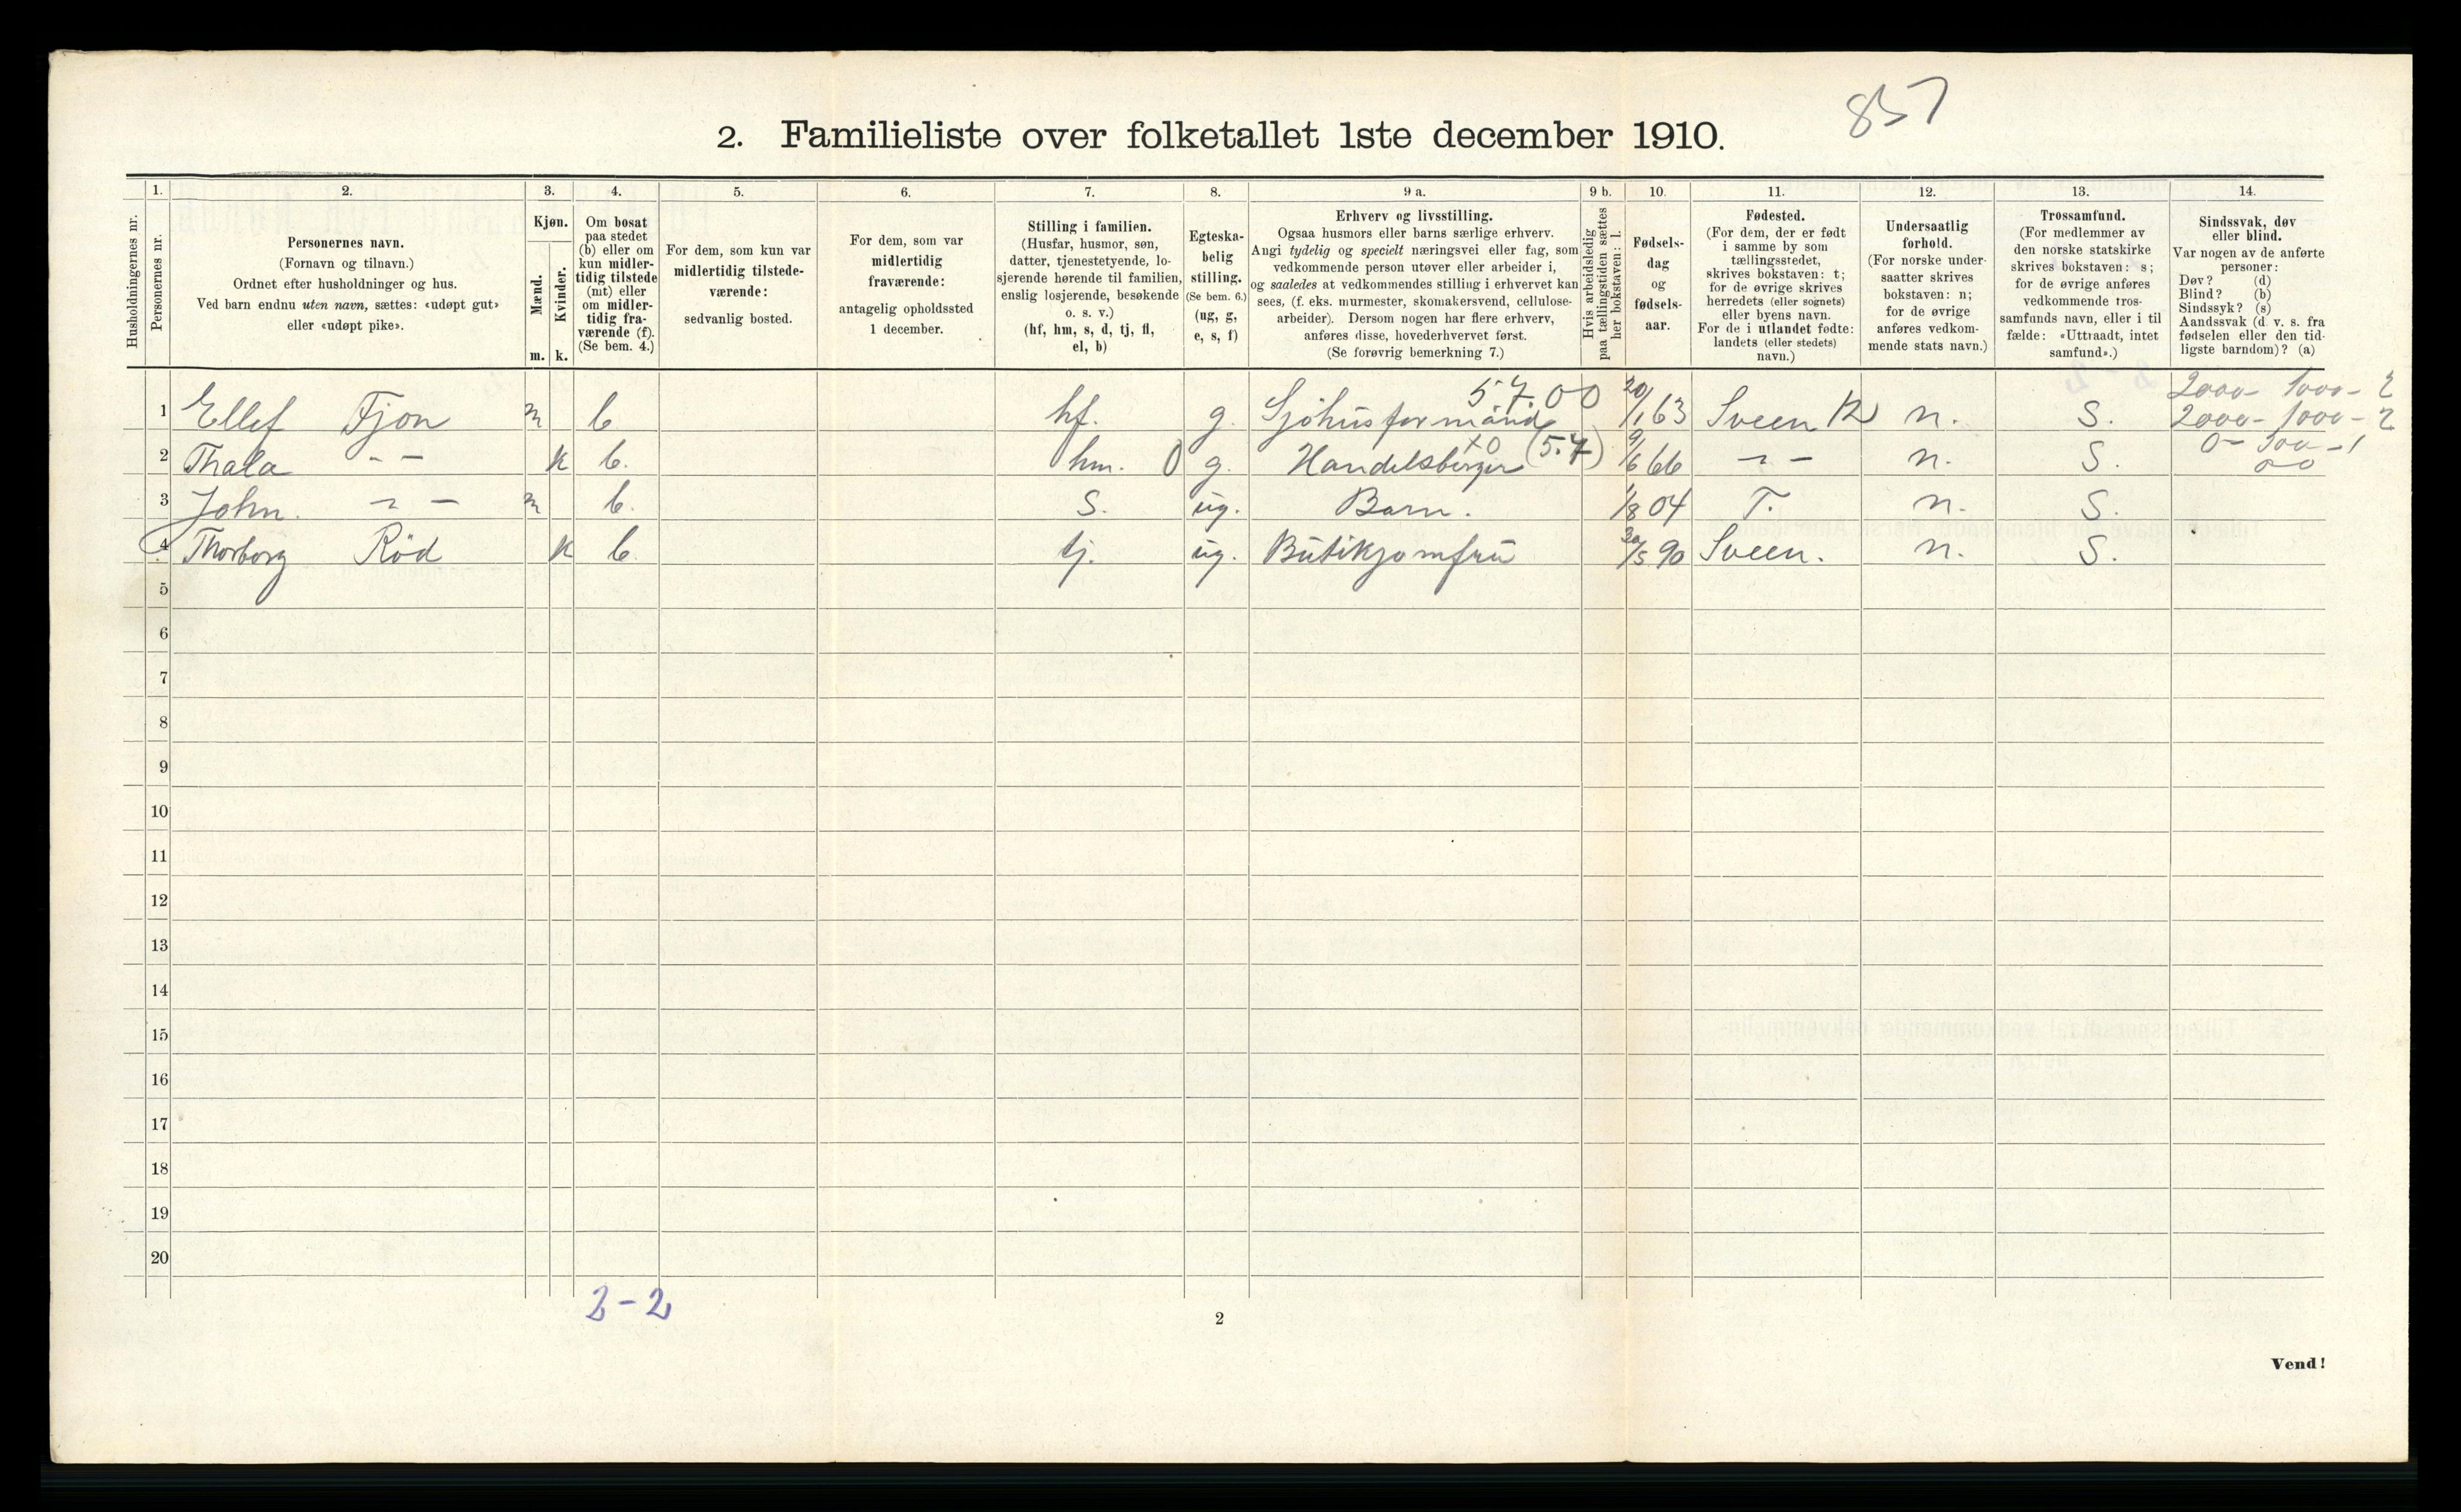 857
2. Familieliste over folketallet 1ste december 1910.
1. 2. 3. 4. 5. 6. 7. 8. 9 a. 9 b. 10. 11. 12. 13. 14.
Husholdningernes nr.
Personernes nr.
Personernes navn.
(Fornavn og tilnavn.)
Ordnet efter husholdninger og hus.
Ved barn endnu uten navn, sættes: «udøpt gut»
eller «udøpt pike».
Kjøn.
Mænd.
Kvinder.
m. k.
Om bosat
paa stedet
(b) eller om
kun midler-
tidig tilstede
(mt) eller
om midler-
tidig fra-
værende (f).
(Se bem. 4.)
For dem, som kun var
midlertidig tilstede-
værende:
sedvanlig bosted.
For dem, som var
midlertidig
fraværende:
antagelig opholdssted
1 december.
Stilling i familien.
(Husfar, husmor, søn,
datter, tjenestetyende, lo-
sjerende hørende til familien,
enslig losjerende, besøkende
o. s. v.)
(hf, hm, s, d, tj, fl,
el, b)
Egteska-
belig
stilling.
(Se bem. 6.)
(ug, g,
e, s, f)
Erhverv og livsstilling.
Ogsaa husmors eller barns særlige erhverv.
Angi tydelig og specielt næringsvei eller fag, som
vedkommende person utøver eller arbeider i,
og saaledes at vedkommendes stilling i erhvervet kan
sees, (f. eks. murmester, skomakersvend, cellulose-
arbeider). Dersom nogen har flere erhverv,
anføres disse, hovederhvervet først.
(Se forøvrig bemerkning 7.)
Hvis arbeidsledig
paa tællingstiden sættes
her bokstaven: l.
Fødsels-
dag
og
fødsels-
aar.
Fødested.
(For dem, der er født
i samme by som
tællingsstedet,
skrives bokstaven: t;
for de øvrige skrives
herredets (eller sognets)
eller byens navn.
For de i utlandet fødte:
landets (eller stedets)
navn.)
Undersaatlig
forhold.
(For norske under-
saatter skrives
bokstaven: n;
for de øvrige
anføres vedkom-
mende stats navn.)
Trossamfund.
(For medlemmer av
den norske statskirke
skrives bokstaven: s;
for de øvrige anføres
vedkommende tros-
samfunds navn, eller i til
fælde: «Uttraadt, intet
samfund».)
Sindssvak, døv
eller blind.
Var nogen av de anførte
personer:
Døv? (d)
Blind? (b)
Sindssyk? (s)
Aandssvak (d. v. s. fra
fødselen eller den tid-
ligste barndom)? (a)
57.00 2000- 1000- 2
1 Ellef Fjon m b hf. g. Sjöhusformand 20/1 63 Sveen 12 n. S. 2000- 1000- 2
x0 (57) 0- 300 -1
2 Thala - - k b. hm. 0 g. Handelsborger 9/6 66 - - n. S. 00
3 John. - - m b. S. ug. Barn. 1/8 04 T. n. S.
4 Thorborg Röd k b tj. ug. Butikjomfru 30/5 90 Sveen. n. S.
5
6
7
8
9
10
11
12
13
14
15
16
17
18
19
20
2-2
2
Vend!